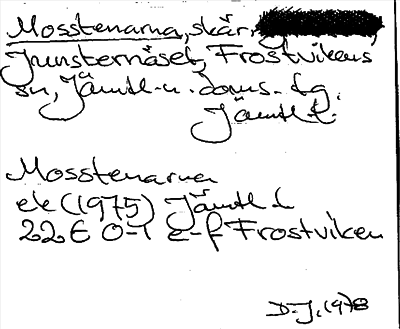 Mosstenarna, skär,
Junsternäset, Frostvikens
sn, Jämtl. n. doms. tg.
Jämtl. l.
Mosstenarna
ek (1975) Jämtl. l
22E 0-1 e-f Frostviken
D-J, 1978